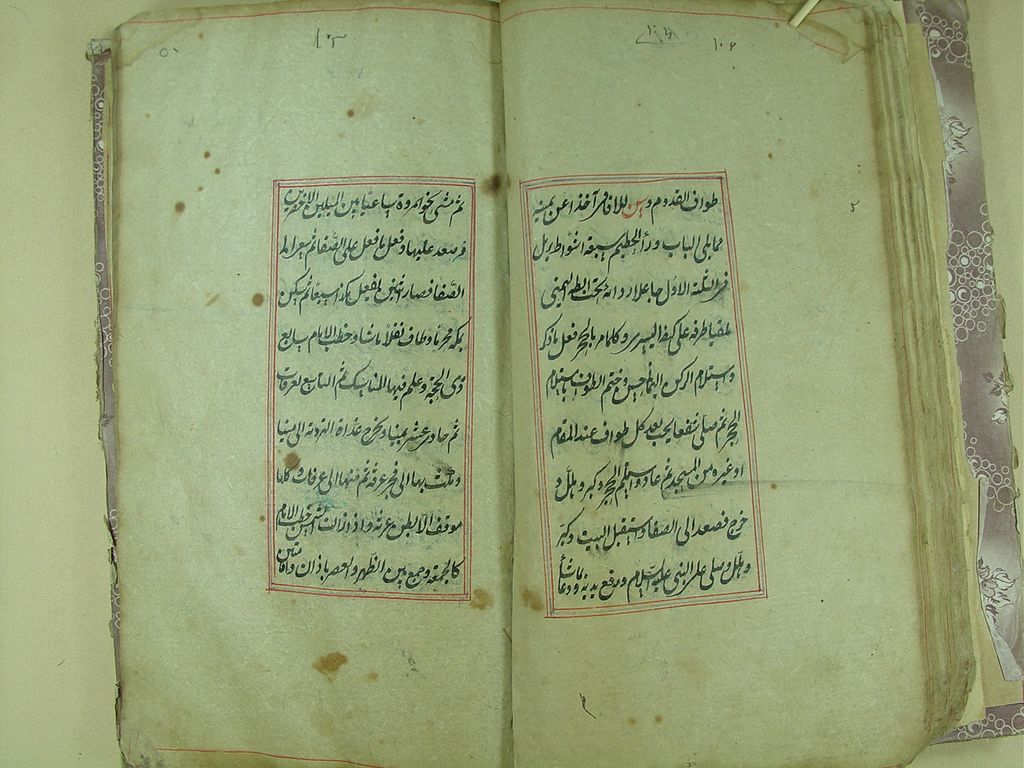 ١٠٦
طواف القدوم وسن للافاقى آخذا عن يمينه
مما يلى الباب وراء الحطيم سبعة اشواط يرمل
فى الثلثة الاول جاعلا رداءه تحت ابطه اليمنى
ملقيا طرفه على كتفه اليسرى وكلما مر بالحجر فعل ما ذكر
ويستلم الركن اليمانى وختم الطواف باستلام
الحجر ثم صلى شفعا يجب بعد كل طواف عند المقام
او غيره من المسجد ثم عاد واستلم الحجر وكبر وهلل و
خرج فصعد الى الصفا واستقبل البيت وكبر
وهلل وصلى على النبى عليه السلام ورفع يديه ودعا بما شاء
١٠٥
٥٠
ثم مشى نحو المروة ساعيا بين الميلين الاخضرين
وصعد عليها وفعل ما فعل على الصفا ثم
الصفا فصار يفعل هكذا سبعا ثم سكن
بمكة محرما وطاف نفلا ما شاء وخطب الامام سابع
ذى الحجة وعلم فيها المناسك ثم التاسع بعرفات
ثم حادى عشر بمنا وخرج غداة التروية الى منا
ومكث بها الى فجر عرفة ثم منها الى عرفات وكلها
موقف الا بطن عرنة واذا زالت الشمس خطب الامام
كالجمعة وجمع بين الظهر والعصر باذان واقامتين